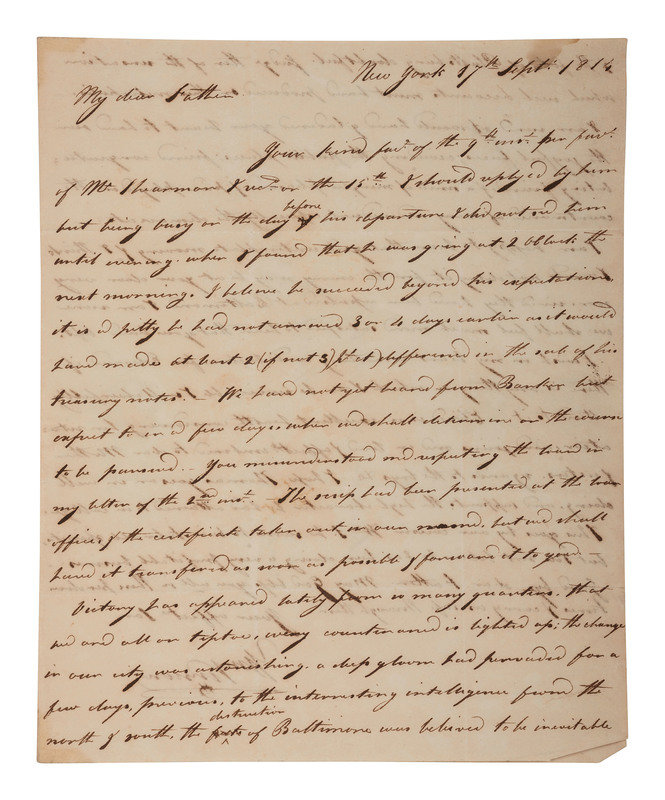 New York 17th Septr. 1814
My dear Father
Your kind favr. of the 9th inst. per favr.
of Mr. Shearman I recd. on the 15th. I should replyed by him
but being busy on the day before of his departure I did not see him
until evening. when I found that he was going at 2 OClock the
next morning. I believe he succeeded beyond his expectations,
it is a pitty he had not arrived 3 or 4 days earlier as it would
have made at least 2 (if not 3) (pr ct) difference in the sale of his
treasury notes. We have not yet heard from Barker but
expect to in a few days, when we shall determine on the course
to be pursued. - You misunderstood me respecting the loan in
my letter of the 2nd inst. - The scrip had been presented at the loan
office, & the certificate taken out in our name, but we shall
have it transfered as soon as possible & forward it to you
Victory has appeared lately from so many quarters, that
we are all on tiptoe, every countenance is lighted up; the change
in our city was astonishing, a deep gloom had pervaded for a
few days, previous, to the interresting intelligence from the
north & south, the destruction of Baltimore was believed to be inevitable